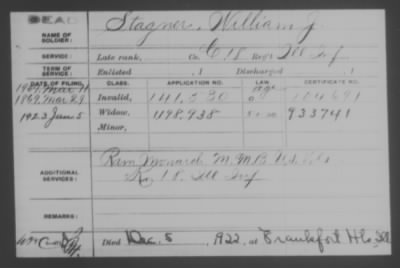 DEAD
NAME OF SOLDIER: Stagner, William J.
SERVICE: Late rank, Co. C 18 Reg't Ill Inf
TERM OF SERVICE: Enlisted , 1 Discharged , 1
DATE OF FILING. CLASS. APPLICATION NO. LAW. CERTIFICATE NO.
1907. Mar 11 age
1869. Mar 29 Invalid, 141.530 104691
1923 Jan 5 Widow, 1198.938 933741
Minor,
ADDITIONAL SERVICES: M.M.B. U.S. Vols
K 18 Ill Inf
REMARKS:
Died Dec. 5, 1922, at Frankfort Hts, Ill